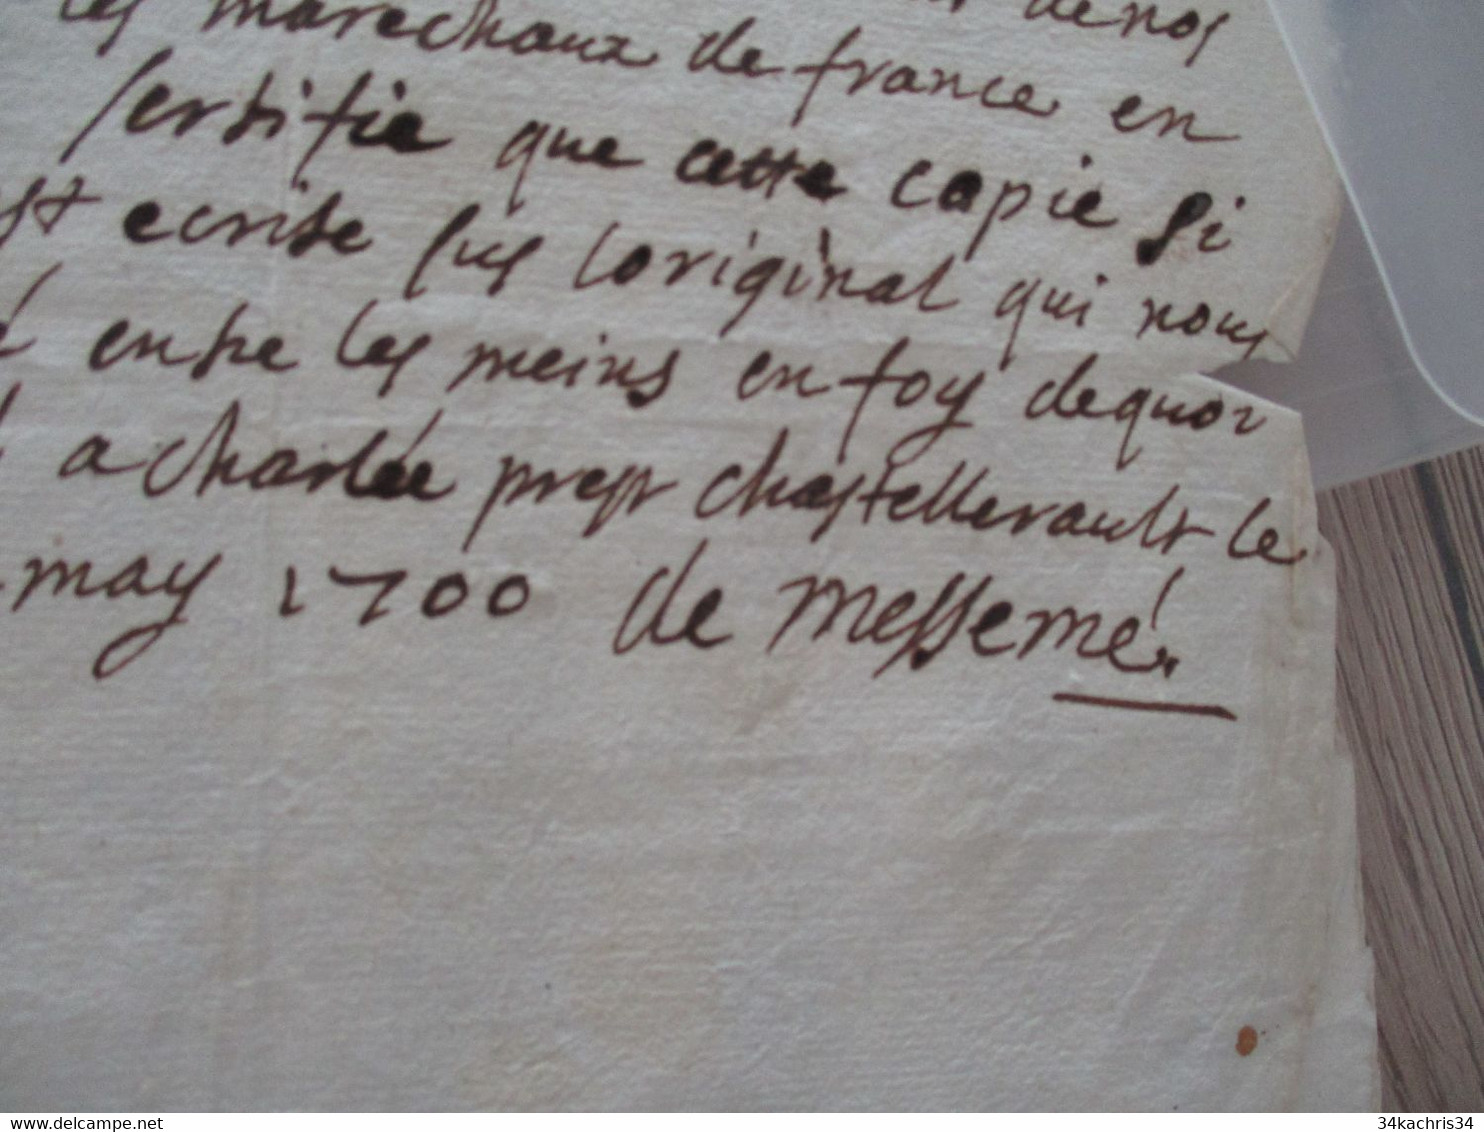 de nos
les marechaux de france en
sertifie que cette copie si
est ecritte sur loriginal qui nous
entre les meins en foy dequoi
a charlée prest chastellerault le
may 1700 de messemé
www.delcampe.net
34kachris34